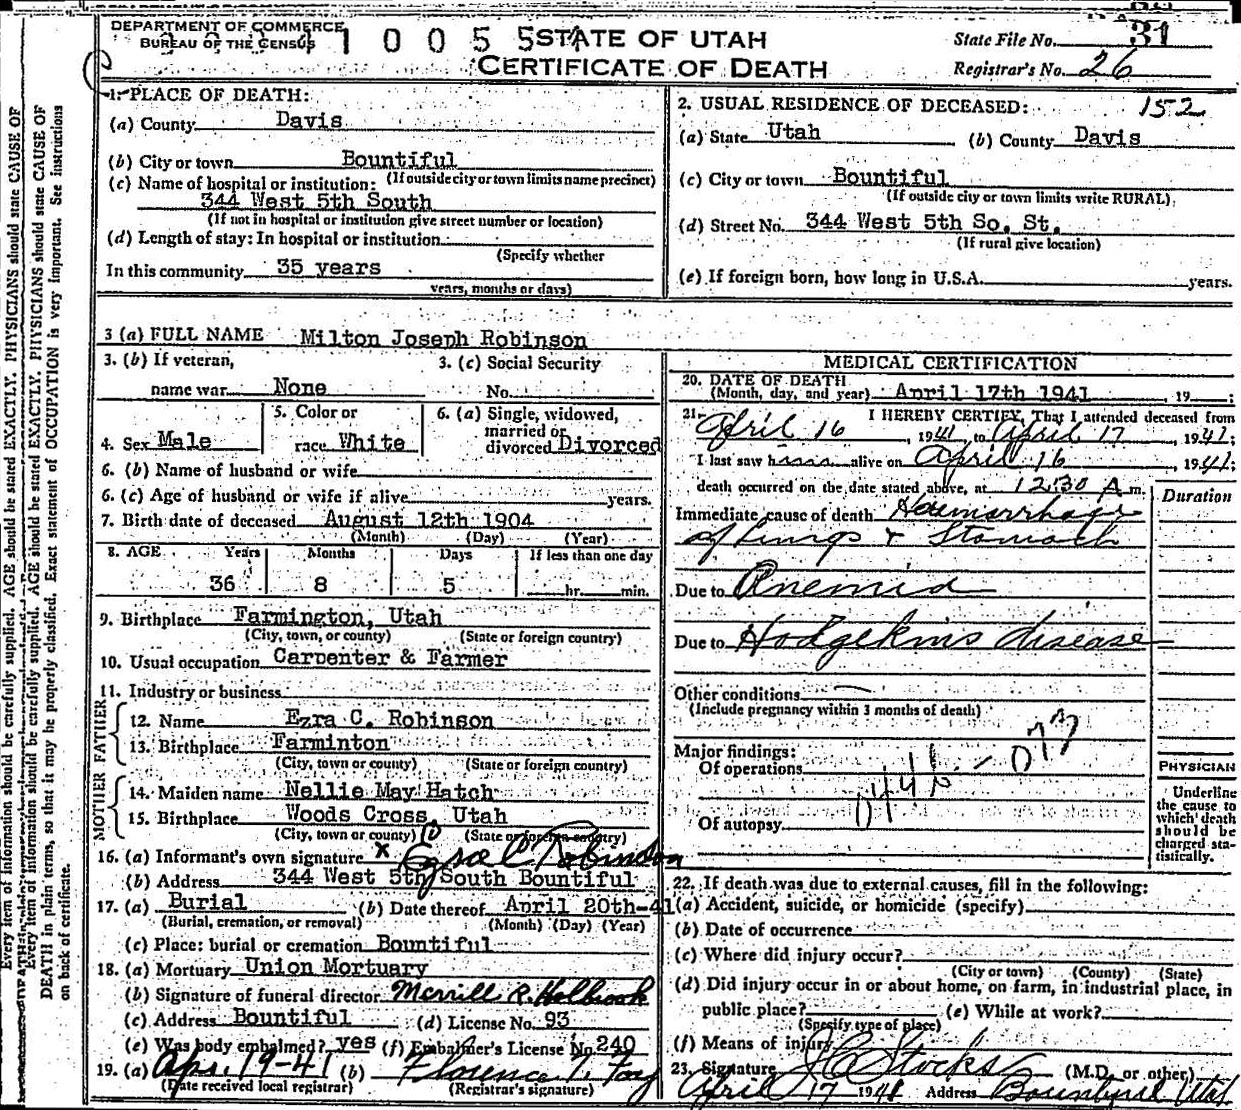 DEPARTMENT OF COMMERCE
BUREAU OF THE CENSUS
1 0 0 5 5
STATE OF UTAH
CERTIFICATE OF DEATH
State File No. 31
Registrar's No. 26
1. PLACE OF DEATH:
(a) County Davis
(b) City or town Bountiful
(If outside city or town limits name precinct)
(c) Name of hospital or institution:
344 West 5th South
(If not in hospital or institution give street number or location)
(d) Length of stay: In hospital or institution
(Specify whether
In this community 35 years
years, months or days)
2. USUAL RESIDENCE OF DECEASED: 152
(a) State Utah (b) County Davis
(c) City or town Bountiful
(If outside city or town limits write RURAL)
(d) Street No. 344 West 5th So. St.
(If rural give location)
(e) If foreign born, how long in U.S.A. years.
3 (a) FULL NAME Milton Joseph Robinson
3. (b) If veteran,
name war None
3. (c) Social Security
No.
4. Sex Male
5. Color or
race White
6. (a) Single, widowed,
married or
divorced Divorced
6. (b) Name of husband or wife
6. (c) Age of husband or wife if alive years.
7. Birth date of deceased August 12th 1904
(Month) (Day) (Year)
8. AGE Years Months Days If less than one day
36 8 5 hr. min.
9. Birthplace Farmington, Utah
(City, town, or county) (State or foreign country)
10. Usual occupation Carpenter & Farmer
11. Industry or business
FATHER
12. Name Ezra C. Robinson
13. Birthplace Farminton
(City, town or county) (State or foreign country)
MOTHER
14. Maiden name Nellie May Hatch
15. Birthplace Woods Cross, Utah
(City, town or county) (State or foreign country)
16. (a) Informant's own signature x Ezra C Robinson
(b) Address 344 West 5th South Bountiful
17. (a) Burial (b) Date thereof April 20th-41
(Burial, cremation, or removal) (Month) (Day) (Year)
(c) Place: burial or cremation Bountiful
18. (a) Mortuary Union Mortuary
(b) Signature of funeral director Merrill R. Holbrook
(c) Address Bountiful (d) License No. 93
(e) Was body embalmed? yes (f) Embalmer's License No. 240
19. (a) Apr. 19-41 (b) Florence T. Foy
(Date received local registrar) (Registrar's signature)
MEDICAL CERTIFICATION
20. DATE OF DEATH
(Month, day, and year) April 17th 1941, 19 ;
21. I HEREBY CERTIFY, That I attended deceased from
April 16, 1941, to April 17, 1941;
I last saw him alive on April 16, 1941;
death occurred on the date stated above, at 12:30 A m.
Duration
Immediate cause of death Haemorrhage
of lungs & Stomach
Due to Anemia
Due to Hodgekins disease
Other conditions
(Include pregnancy within 3 months of death)
Major findings:
Of operations
Of autopsy
044b - 077
PHYSICIAN
Underline
the cause to
which death
should be
charged sta-
tistically.
22. If death was due to external causes, fill in the following:
(a) Accident, suicide, or homicide (specify)
(b) Date of occurrence
(c) Where did injury occur?
(City or town) (County) (State)
(d) Did injury occur in or about home, on farm, in industrial place, in
public place? (e) While at work?
(Specify type of place)
(f) Means of injury
23. Signature Stocks (M.D. or other)
April 17 1941 Address Bountiful Utah
Every item of information should be carefully supplied. AGE should be stated EXACTLY. PHYSICIANS should state CAUSE OF
Every item of information should be carefully supplied. AGE should be stated EXACTLY. PHYSICIANS should state CAUSE OF
DEATH in plain terms, so that it may be properly classified. Exact statement of OCCUPATION is very important. See instructions
on back of certificate.